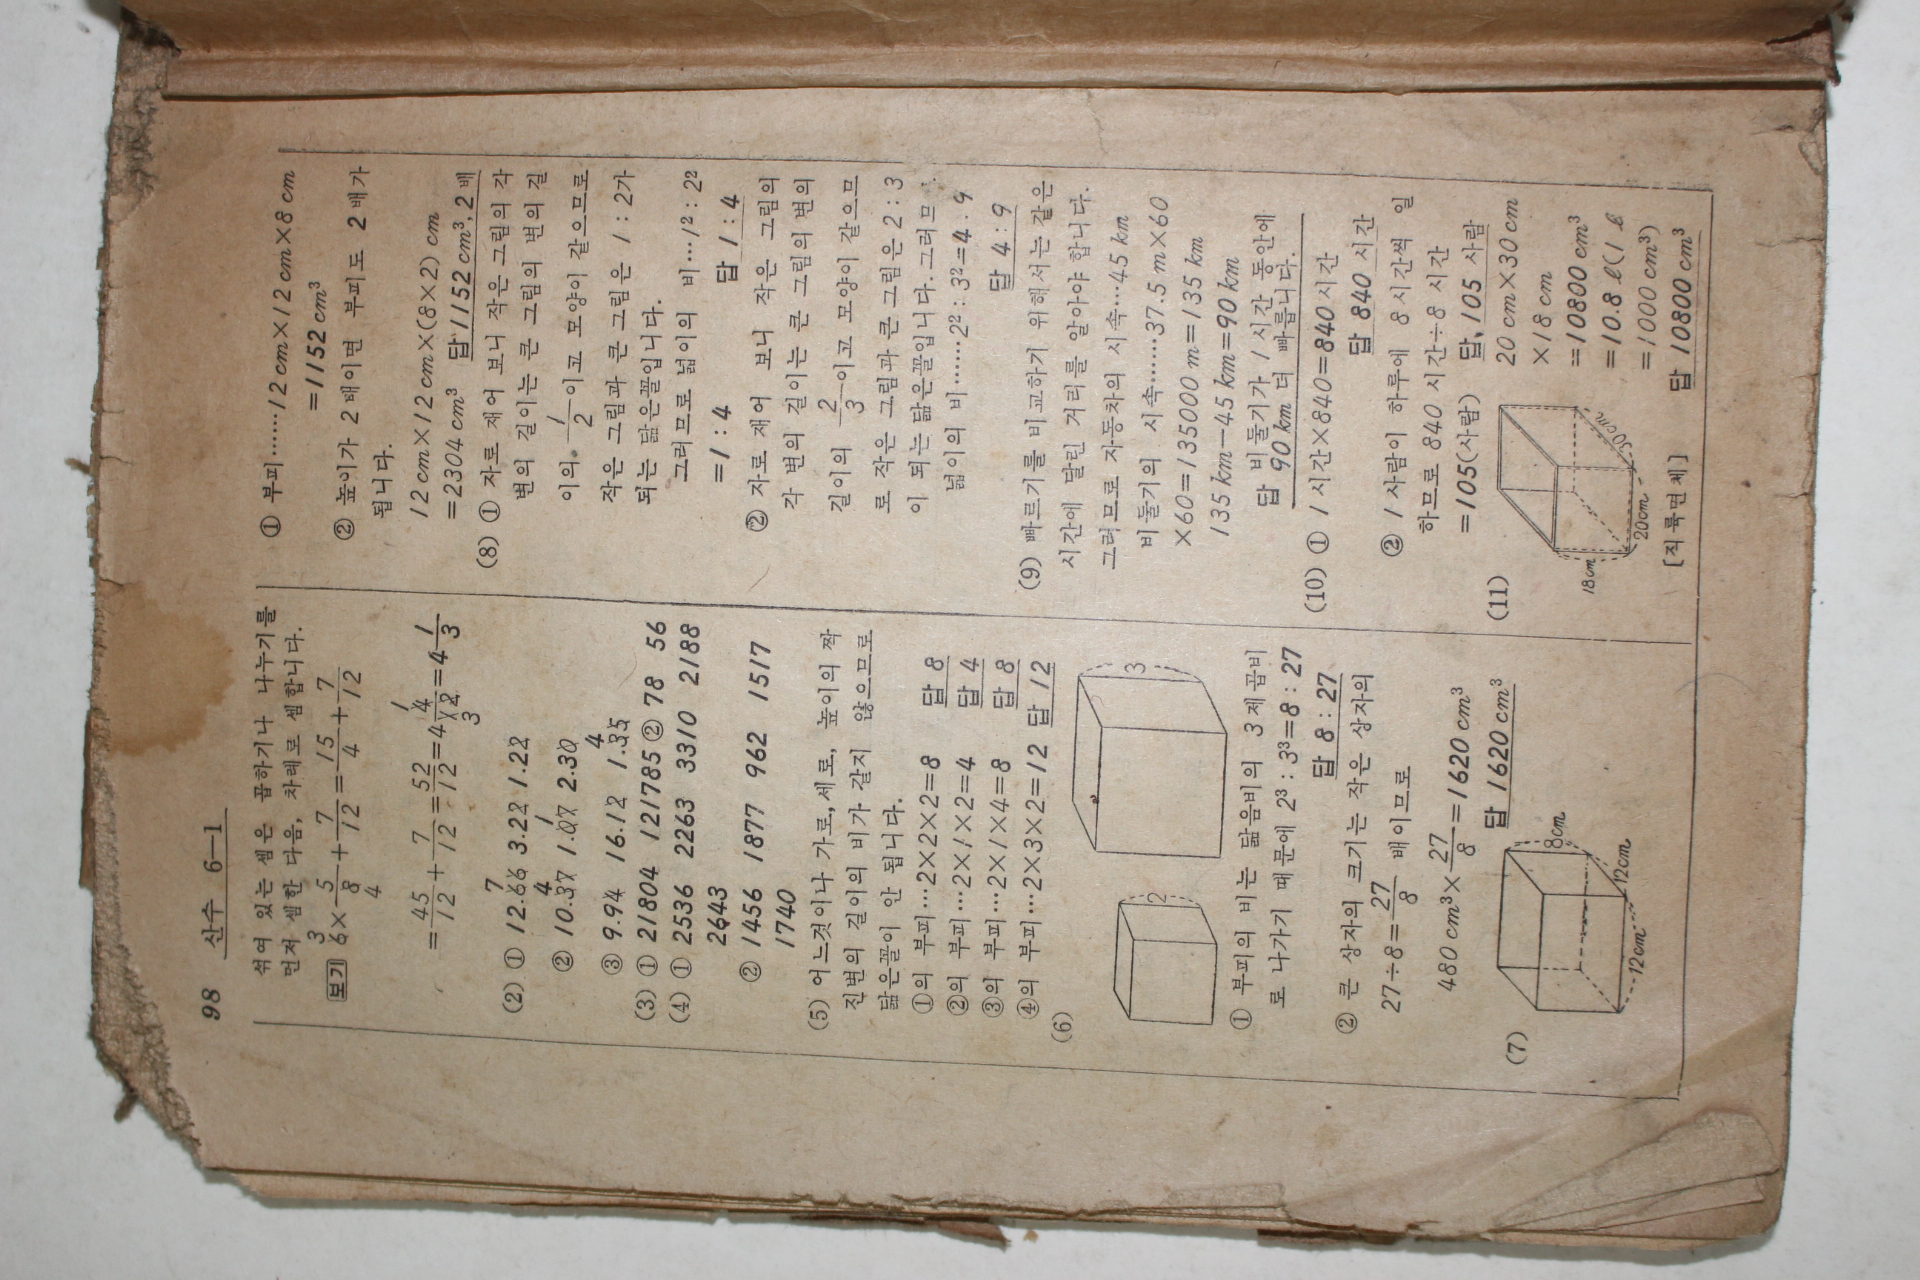 98 산수 6—1
섞여 있는 셈은 곱하기나 나누기를
먼저 셈한 다음, 차례로 셈합니다.
보기 6×5/8+7/12=15/4+7/12
3
4
=45/12+7/12=52/12=4 4/12=4 1/3
1
3
(2) ① 12.66 3.22 1.22
7
② 10.37 1.07 2.30
4 1
③ 9.94 16.12 1.35
4
(3) ① 21804 121785 ② 78 56
(4) ① 2536 2263 3310 2188
2643
② 1456 1877 962 1517
1740
(5) 어느것이나 가로, 세로, 높이의 짝
진변의 길이의 비가 같지 않으므로
닮은꼴이 안 됩니다.
①의 부피…2×2×2=8 답 8
②의 부피…2×1×2=4 답 4
③의 부피…2×1×4=8 답 8
④의 부피…2×3×2=12 답 12
(6)
2
3
① 부피의 비는 닮음비의 3제곱비
로 나가기 때문에 2³ : 3³=8 : 27
답 8 : 27
② 큰 상자의 크기는 작은 상자의
27÷8=27/8 배이므로
480 cm³×27/8=1620 cm³
답 1620 cm³
(7)
8cm
12cm
12cm
① 부피……12cm×12cm×8cm
=1152cm³
② 높이가 2배이면 부피도 2배가
됩니다.
12cm×12cm×(8×2)cm
=2304cm³ 답 1152cm³, 2배
(8) ① 자로 재어 보니 작은 그림의 각
변의 길이는 큰 그림의 변의 길
이의 1/2이고 모양이 같으므로
작은 그림과 큰 그림은 1 : 2가
되는 닮은꼴입니다.
그러므로 넓이의 비…1² : 2²
=1 : 4 답 1 : 4
② 자로 재어 보니 작은 그림의
각 변의 길이는 큰 그림의 변의
길이의 2/3이고 모양이 같으므
로 작은 그림과 큰 그림은 2 : 3
이 되는 닮은꼴입니다. 그러므로
넓이의 비……2² : 3²=4 : 9
답 4 : 9
(9) 빠르기를 비교하기 위해서는 같은
시간에 달린 거리를 알아야 합니다.
그러므로 자동차의 시속…45km
비둘기의 시속……37.5m×60
×60=135000m=135km
135km—45km=90km
답 비둘기가 1시간 동안에
90km 더 빠릅니다.
(10) ① 1시간×840=840시간
답 840시간
② 1사람이 하루에 8시간씩 일
하므로 840시간÷8시간
=105(사람) 답, 105사람
(11)
18cm
20cm
30cm
[직육면체]
20cm×30cm
×18cm
=10800cm³
=10.8ℓ(1ℓ
=1000cm³)
답 10800cm³